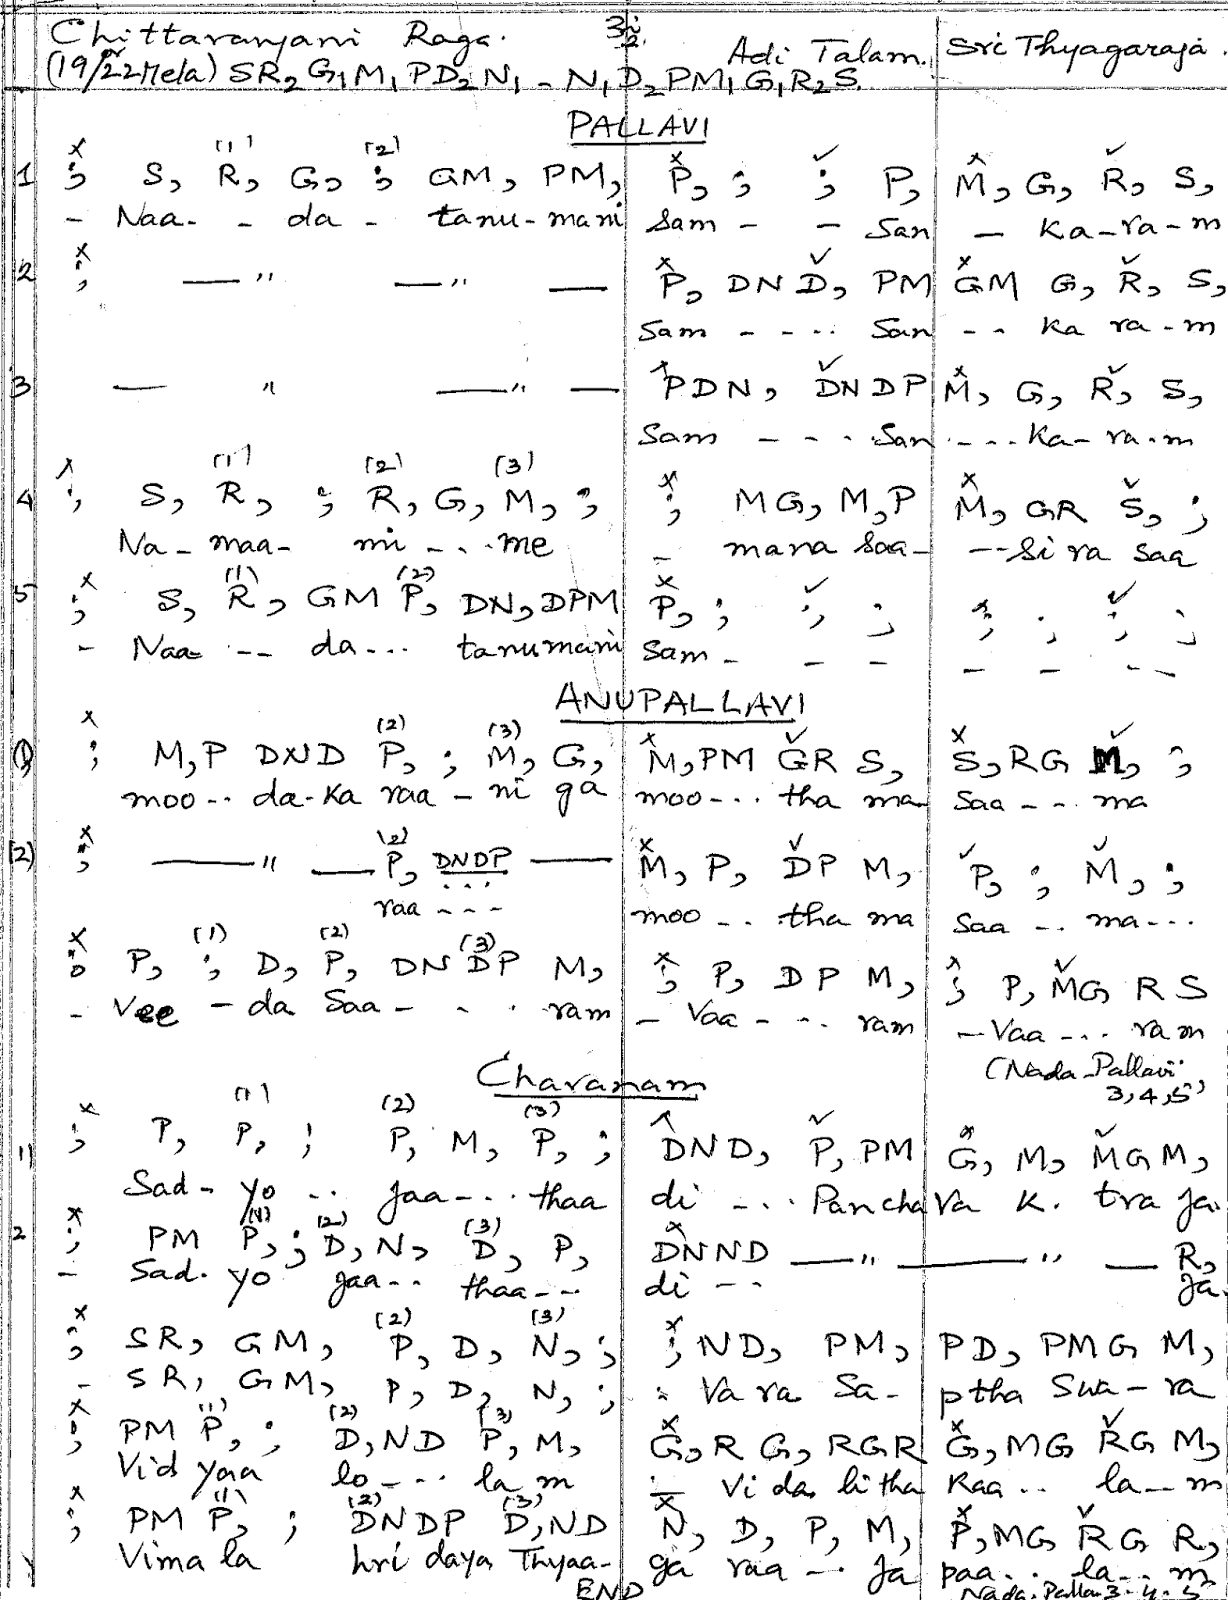 Chittaranjani Raga. Adi Talam. Sri Thyagaraja.
(19/22 Mela) SR₂G₁M₁PD₂N₁ - N₁D₂PM₁G₁R₂S.
PALLAVI
(1) (2)
1 ; S, R, G, ; GM, PM, P, ; ; P, M, G, R, S,
- Naa- - da - tanu-mani Sam - - San - Ka-ra-m
2 ; —" —" — P, DN D, PM GM G, R, S,
Sam - - .. San - - Ka ra-m
3 — " —" — PDN, DNDP M, G, R, S,
Sam - - - . San - ... Ka- ra.m
(1) (2) (3)
4 ; S, R, ; R, G, M, ; ; MG, M,P M, GR S, ;
Na - maa- mi - .. me - mana Saa- --Si ra saa
(1) (2)
5 ; S, R, GM P, DN,DPM P, ; ; ; ; ; ; ;
- Naa -- da... tanumani Sam - - - - - - -
ANUPALLAVI
(2) (3)
(1) ; M,P DND P, ; M, G, M,PM GR S, S,RG M, ;
moo .. da-Ka raa - ni ga moo-.. tha ma Saa - - ma
(2)
(2) ; —" — P, DNDP — M, P, DP M, P, ; M, ;
raa - - - moo .. tha ma Saa .. ma...
(1) (2) (3)
; P, ; D, P, DN DP M, ; P, DP M, ; P, MG RS
- Vee - da Saa - . . ram - Vaa - .. ram - Vaa ... ram
(Nada Pallavi
3,4,5)
Charanam
(1) (2) (3)
1) ; P, P, ; P, M, P, ; DND, P, PM G, M, MGM,
Sad - yo .. Jaa-.. thaa di - .. Pancha Va K. tra Ja.
(1) (2) (3)
2 ; PM P, ; D, N, D, P, DNND —" —" — R,
- Sad. yo Jaa-- thaa-- di -- Ja.
(2) (3)
; SR, GM, P, D, N, ; ; ND, PM, PD, PMG M,
- SR, GM, P, D, N, ; . Va ra Sa- ptha Swa-ra
(1) (2) (3)
; PM P, ; D,ND P, M, G, R G, RGR G,MG RG M,
Vid yaa lo-.. la m - Vi da li tha Kaa .. la--m
(1) (2) (3)
; PM P, ; DNDP D,ND N, D, P, M, P,MG RG R,
Vima la hri daya Thyaa- ga raa -. Ja paa.. la..m
END Nada. Palla 3-4-5